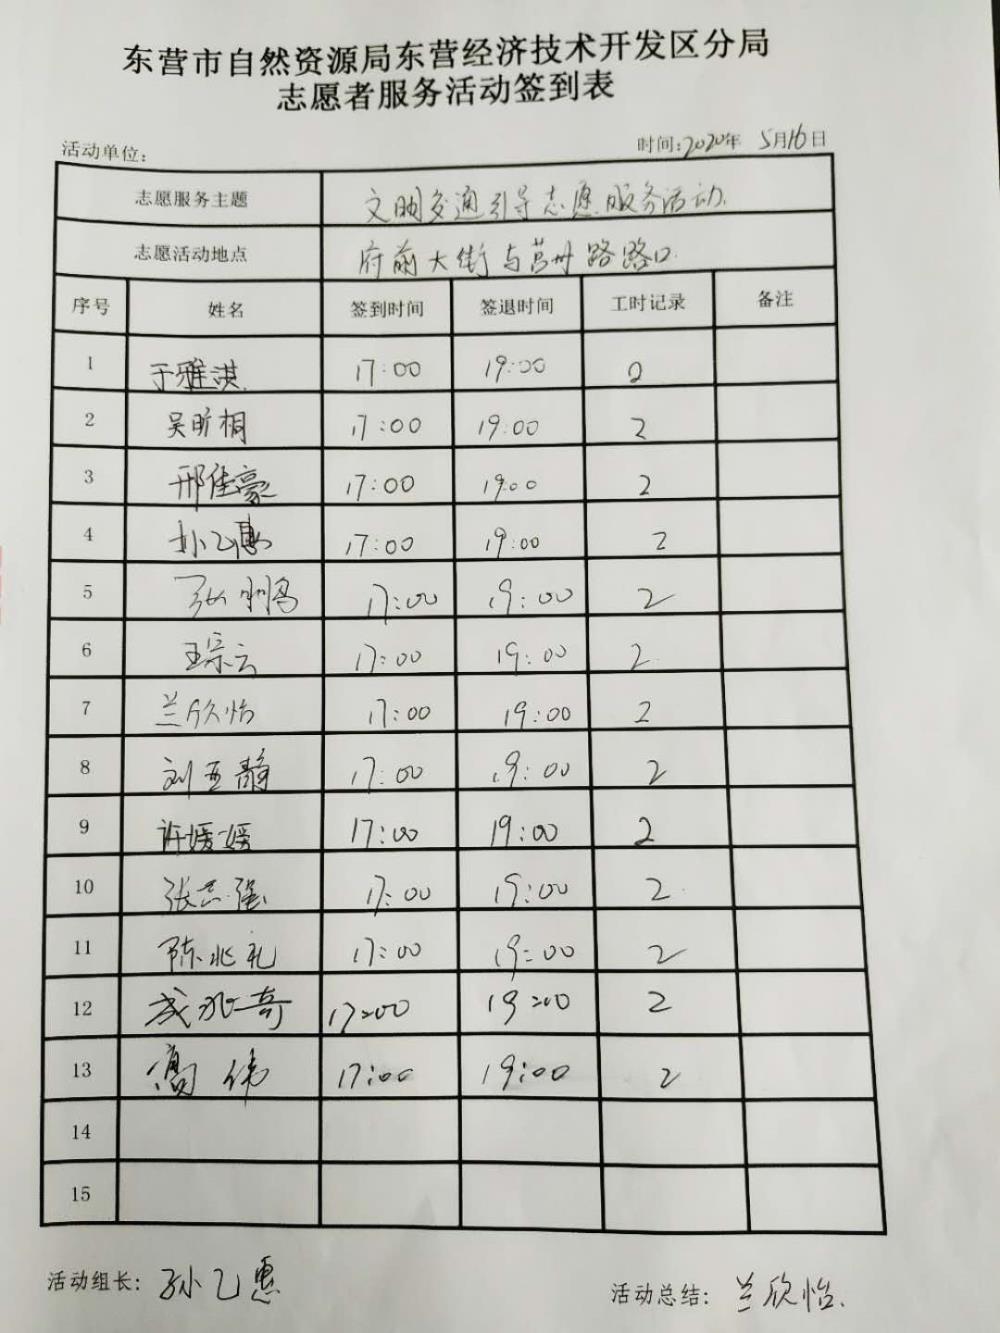 东营市自然资源局东营经济技术开发区分局
志愿者服务活动签到表
活动单位： 时间:2020年 5月16日
志愿服务主题 文明交通引导志愿服务活动.
志愿活动地点 府前大街与莒州路路口.
序号 姓名 签到时间 签退时间 工时记录 备注
1 于雅淇 17:00 19:00 2
2 吴昕桐 17:00 19:00 2
3 邢佳豪 17:00 19:00 2
4 孙乙惠 17:00 19:00 2
5 张 17:00 19:00 2
6 王宗云 17:00 19:00 2
7 兰欣怡 17:00 19:00 2
8 刘亚静 17:00 19:00 2
9 许媛媛 17:00 19:00 2
10 张志强 17:00 19:00 2
11 陈兆礼 17:00 19:00 2
12 成兆奇 17:00 19:00 2
13 高伟 17:00 19:00 2
14
15
活动组长: 孙乙惠 活动总结: 兰欣怡.